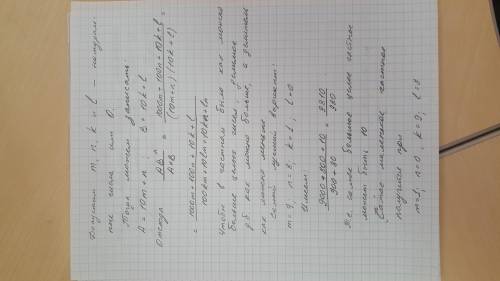 Допустим m, n, k и l — натураль-
ные числа или 0.
Тогда можем записать:
A = 10m + n ; B = 10k + l
Отсюда
AB / A*B = 1000m + 100n + 10k + l / (10m+n)(10k+l) =
= 1000m + 100n + 10k + l / 100km + 10lm + 10kn + ln
Чтобы в частном было как можно
больше целого числа, делимое
д.б. как можно больше, а делитель
как можно меньше
самый лучший вариант:
m = 9, n = 8, k = 1, l = 0
Имеем:
9000 + 800 + 10 / 900 + 80 = 9810 / 980
Т.е. самое большое целое частное
может быть 10
Самое маленькое частное
получим при
m = 1, n = 0, k = 9, l = 8